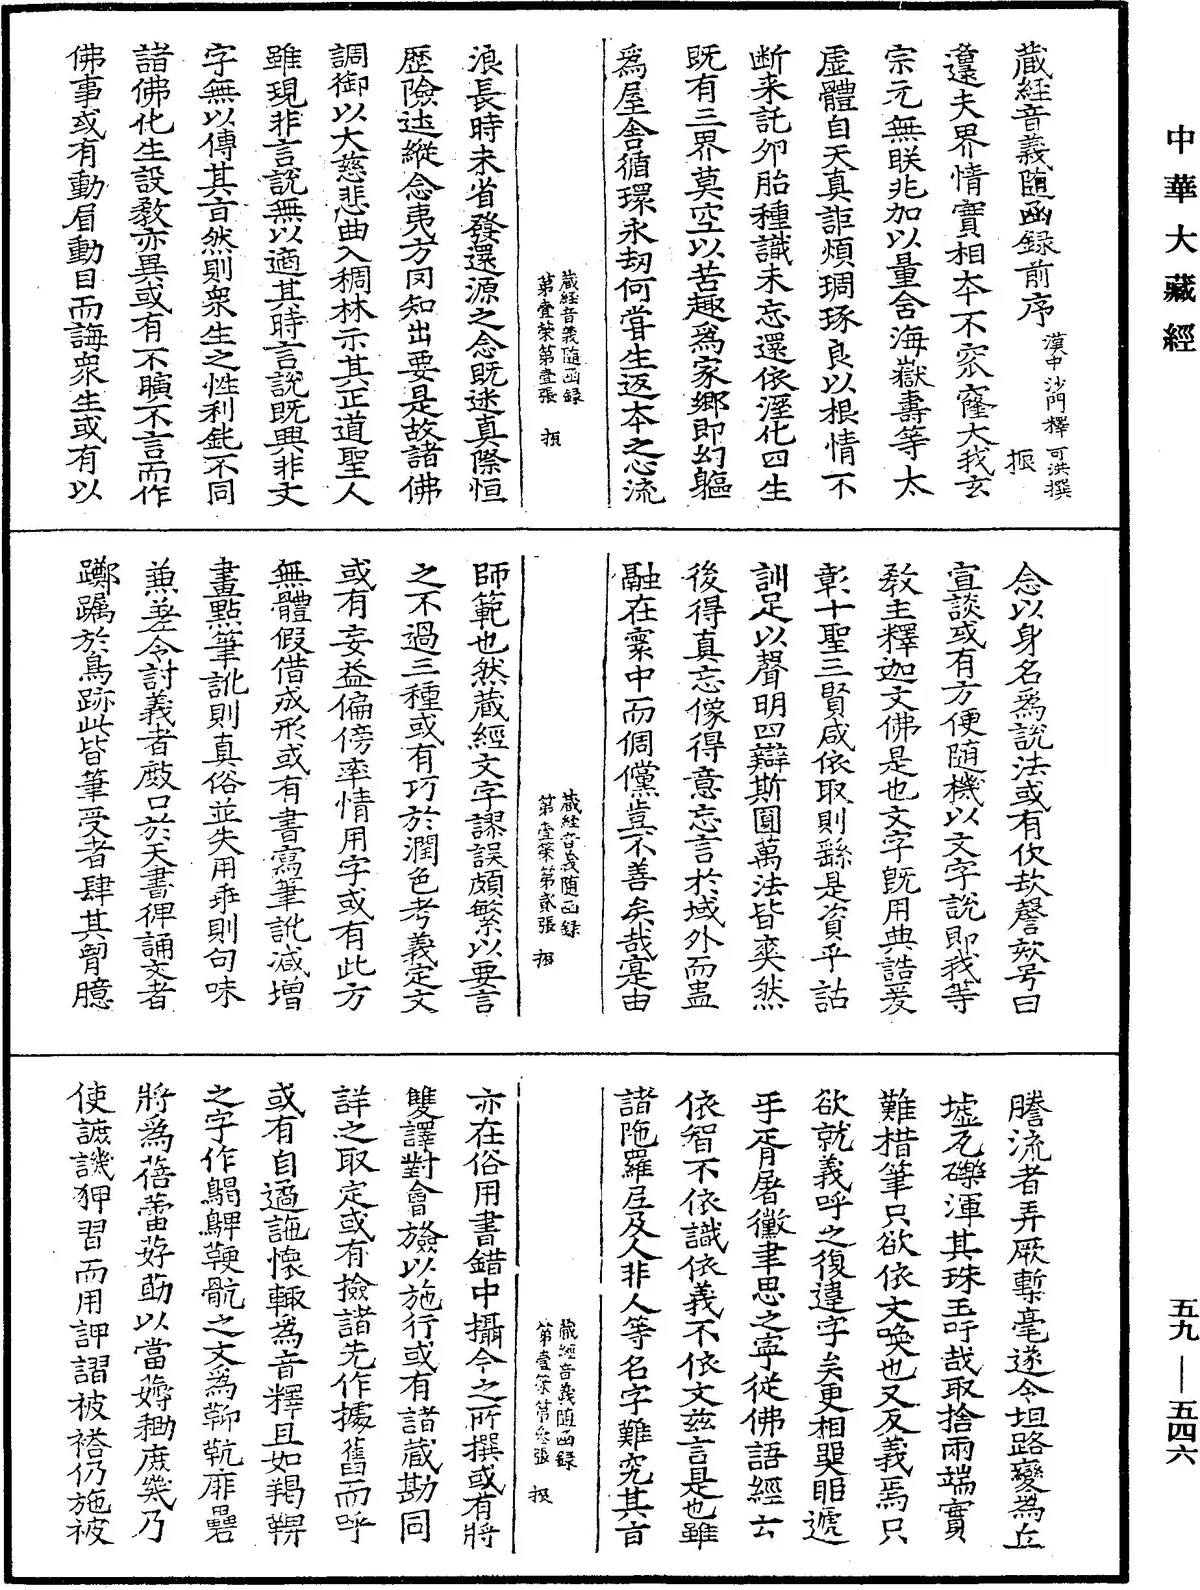 中華大藏經
藏経音義随函録前序 漢中沙門釋可洪撰 振
夫界情實相本不窊窿大我玄
宗元無联兆加以量含海嶽壽等太
虛體自天真詎煩琱琢良以根情不
断来託夘胎種識未忘還依溼化四生
既有三界莫空以苦趣爲家鄉即幻軀
爲屋舍循環永刧何甞生返本之心流
藏経音義随函録
第壹筞第壹張 振
浪長時未省發還源之念既迷真際恒
歴險途縱念夷方罔知出要是故諸佛
調御以大慈悲曲入稠林示其正道聖人
雖現非言說無以適其時言說既興非文
字無以傳其言然則衆生之性利鈍不同
諸佛化生設教亦異或有不曠不言而作
佛事或有動眉動目而誨衆生或有以
念以身名爲說法或有佽㰦謦欬号曰
宣談或有方便随機以文字說即我等
教主釋迦文佛是也文字既用典誥爰
彰十聖三賢咸依取則繇是資乎詁
訓足以聲明四辯斯圓萬法皆爽然
後得真忘像得意忘言於域外而盅
融在寰中而倜儻豈不善矣哉寔由
藏経音義随函録
第壹筞第貳張 振
師範也然藏經文字謬誤頗繁以要言
之不過三種或有巧於潤色考義定文
或有妄益偏傍率情用字或有此方
無體假借成形或有書寫筆訛減增
畫點筆訛則真俗並失用乖則句味
兼差令討義者㪇口於天書俾誦文者
躑躅於鳥跡此皆筆受者肆其胷臆
謄流者弄厥槧毫遂令坦路變為丘
墟瓦礫渾其珠玉吁哉取捨兩端實
難措筆只欲依文喚也又反義焉只
欲就義呼之復違字矣更相狊眀遞
手胥屠黴聿思之寧從佛語經云
依智不依識依義不依文玆言是也雖
諸陁羅𡰱及人非人等名字難究其音
藏經音義随函録
第壹筞第叁張 振
亦在俗用書錯中攝今之所撰或有將
雙譯對會旍以施行或有諸藏勘同
詳之取定或有撿諸先作據舊而呼
或有自遹訑懷輙為音釋且如羯鞞
之字作鶡鵯鞕骯之文為䩕䩑厞罍
將為蓓蕾葕莇以當薅耡庶幾乃
使謶譏狎習而用訷謵被褡仍施被
五九—五四六